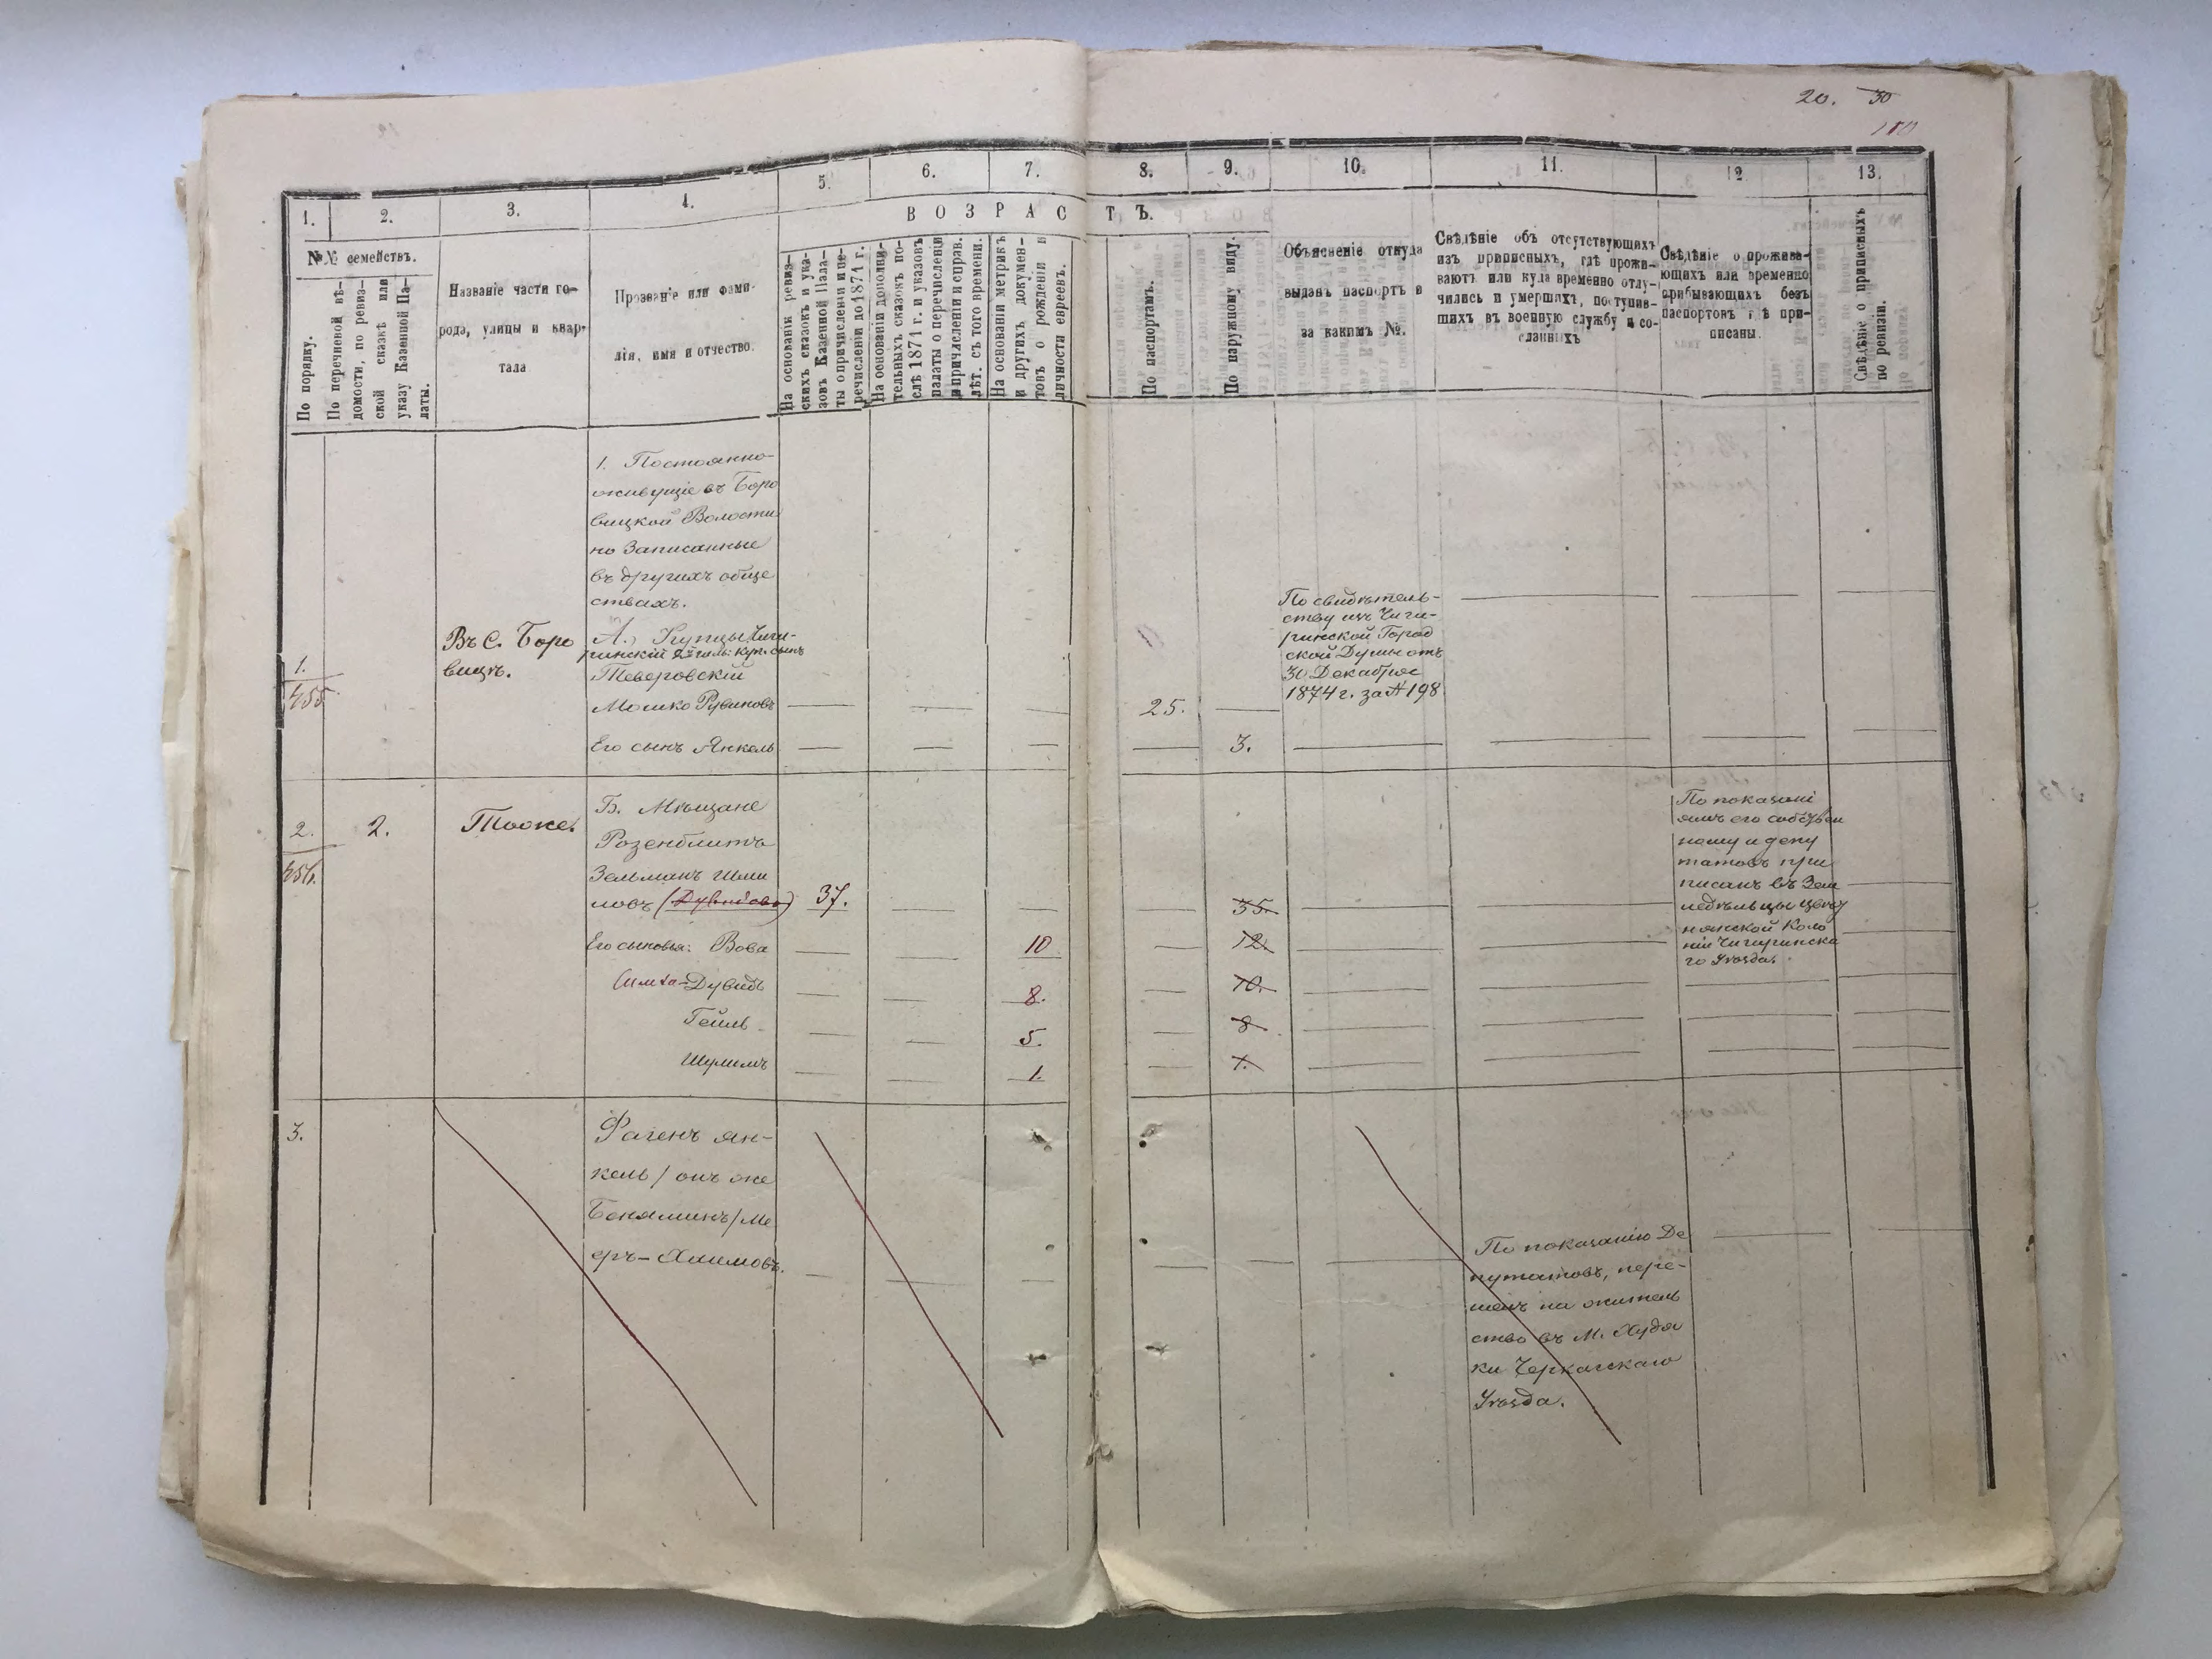 20. 30
1. 2. 3. 4. 5. 6. 7. 8. 9. 10. 11. 12. 13.
В О З Р А С Т Ъ.
№№ семействъ.
По порядку.
По перечневой вѣ-
домости, по ревиз-
ской сказкѣ или
указу Казенной Па-
латы.
Названіе части го-
рода, улицы и квар-
тала
Прозваніе или фами-
лія, имя и отчество.
На основаніи ревиз-
скихъ сказокъ и ука-
зовъ Казенной Пала-
ты о причисленіи и пе-
речисленіи до 1871 г.
На основаніи дополни-
тельныхъ сказокъ по-
слѣ 1871 г. и указовъ
палаты о перечисленіи
и причисленіи и справ.
лѣт. съ того времени.
На основаніи метрикъ
и другихъ докумен-
товъ о рожденіи и
личности евреевъ.
По паспортамъ.
По наружному виду.
Объясненіе откуда
выданъ паспортъ и
за какимъ №.
Свѣдѣніе объ отсутствующихъ
изъ приписныхъ, гдѣ прожи-
ваютъ или куда временно отлу-
чились и умершихъ, поступив-
шихъ въ военную службу и со-
сланныхъ
Свѣдѣніе о прожива-
ющихъ или временно
прибывающихъ безъ
паспортовъ гдѣ при-
писаны.
Свѣдѣніе о приписныхъ
по ревизіи.
1. Постоянно-
живущіе въ Боро
вицкой Волости
но Записанные
въ другихъ обще
ствахъ.
1.
455
Въ С. Боро
вицѣ.
А., Купцы, Чиги-
ринскій 2й гиль: куп. сынъ
Теверовскій
Мошко Рувиновъ
25.
По свидѣтель-
ству изъ Чиги-
ринской Город
ской Думы отъ
30 Декабря
1874 г. за № 198
Его сынъ Янкель
3.
2.
456.
2.
Тоже.
Б. Мѣщане
Розенблитъ
Зельманъ Шми
ловъ
37.
35.
По показані
ямъ его собствен
ному и депу
татовъ при
писанъ въ Зем
ледѣльцы
нянской Коло
ніи Чигиринска
го Уѣзда.
Его сыновья: Вова
10
12.
Дувидъ
8.
10.
Гейль
5.
8.
Шулимъ
1.
3.
Фагенъ Ян-
кель / онъ же
Беняминъ / Ме
еръ-Хаимовъ.
По показанію Де
путатовъ, пере-
шелъ на житель
ство въ М. Худя
ки Черкасскаго
Уѣзда.